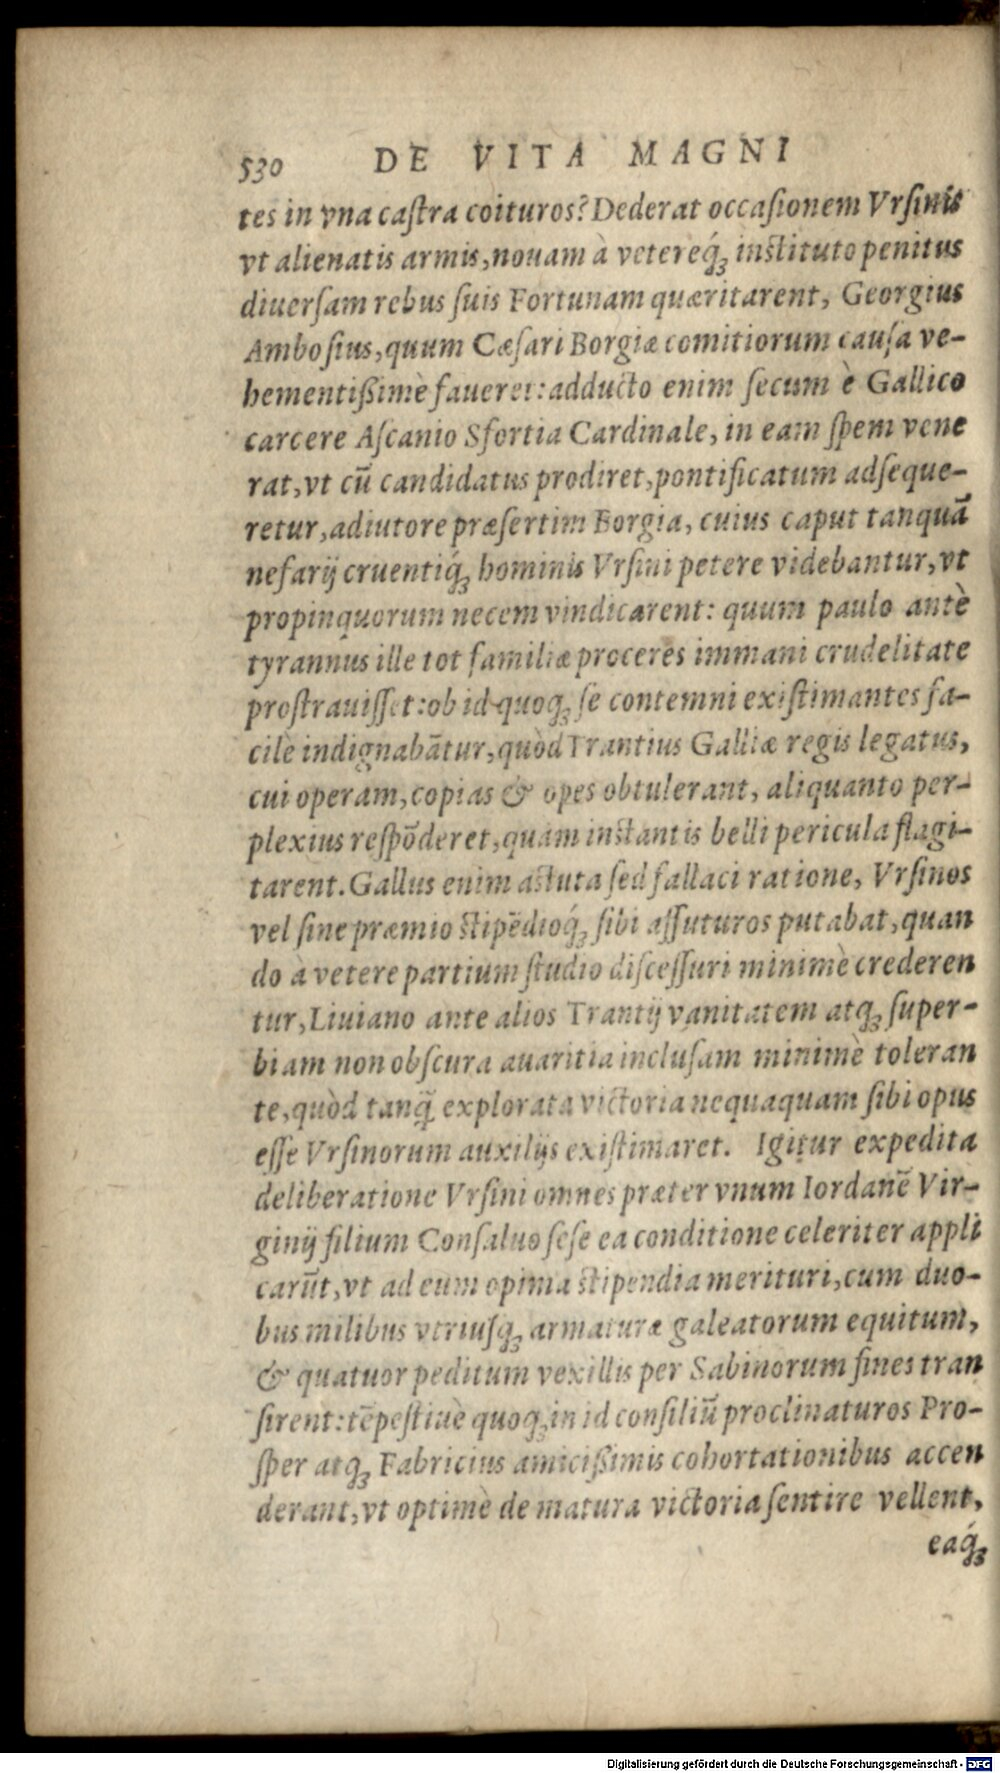 530 DE VITA MAGNI
tes in vna caſtra coituros? Dederat occaſionem Vrſinis
vt alienatis armis, nouam à vetereq́ꝫ inſtituto penitus
diuerſam rebus ſuis Fortunam quæritarent, Georgius
Amboſius, quum Cæſari Borgiæ comitiorum cauſa ve-
hementiſsimè faueret: adducto enim ſecum è Gallico
carcere Aſcanio Sfortia Cardinale, in eam ſpem vene
rat, vt cū candidatus prodiret, pontificatum adſeque-
retur, adiutore præſertim Borgia, cuius caput tanquā
nefarij cruentiq́ꝫ hominis Vrſini petere videbantur, vt
propinquorum necem vindicarent: quum paulo antè
tyrannus ille tot familiæ proceres immani crudelitate
proſtrauiſſet: ob id quoqꝫ ſe contemni exiſtimantes fa-
cilè indignabātur, quòd Trantius Galliæ regis legatus,
cui operam, copias & opes obtulerant, aliquanto per-
plexius reſpōderet, quàm inſtantis belli pericula flagi-
tarent. Gallus enim aſtuta ſed fallaci ratione, Vrſinos
vel ſine præmio ſtipēdioq́ꝫ ſibi aſſuturos putabat, quan
do à vetere partium ſtudio diſceſſuri minimè crederen
tur, Liuiano ante alios Trantij vanitatem atqꝫ ſuper-
biam non obſcura auaritia incluſam minimè toleran
te, quòd tanq̄ explorata victoria nequaquam ſibi opus
eſſe Vrſinorum auxilijs exiſtimaret. Igitur expedita
deliberatione Vrſini omnes præter vnum Iordanē Vir-
ginij filium Conſaluo ſeſe ea conditione celeriter appli
carūt, vt ad eum opima ſtipendia merituri, cum duo-
bus milibus vtriuſqꝫ armaturæ galeatorum equitum,
& quatuor peditum vexillis per Sabinorum fines tran
ſirent: tēpeſtiuè quoqꝫ in id conſiliū proclinaturos Pro-
ſper atqꝫ Fabricius amiciſsimis cohortationibus accen
derant, vt optimè de matura victoria ſentire vellent,
eaq́ꝫ
Digitalisierung gefördert durch die Deutsche Forschungsgemeinschaft - DFG